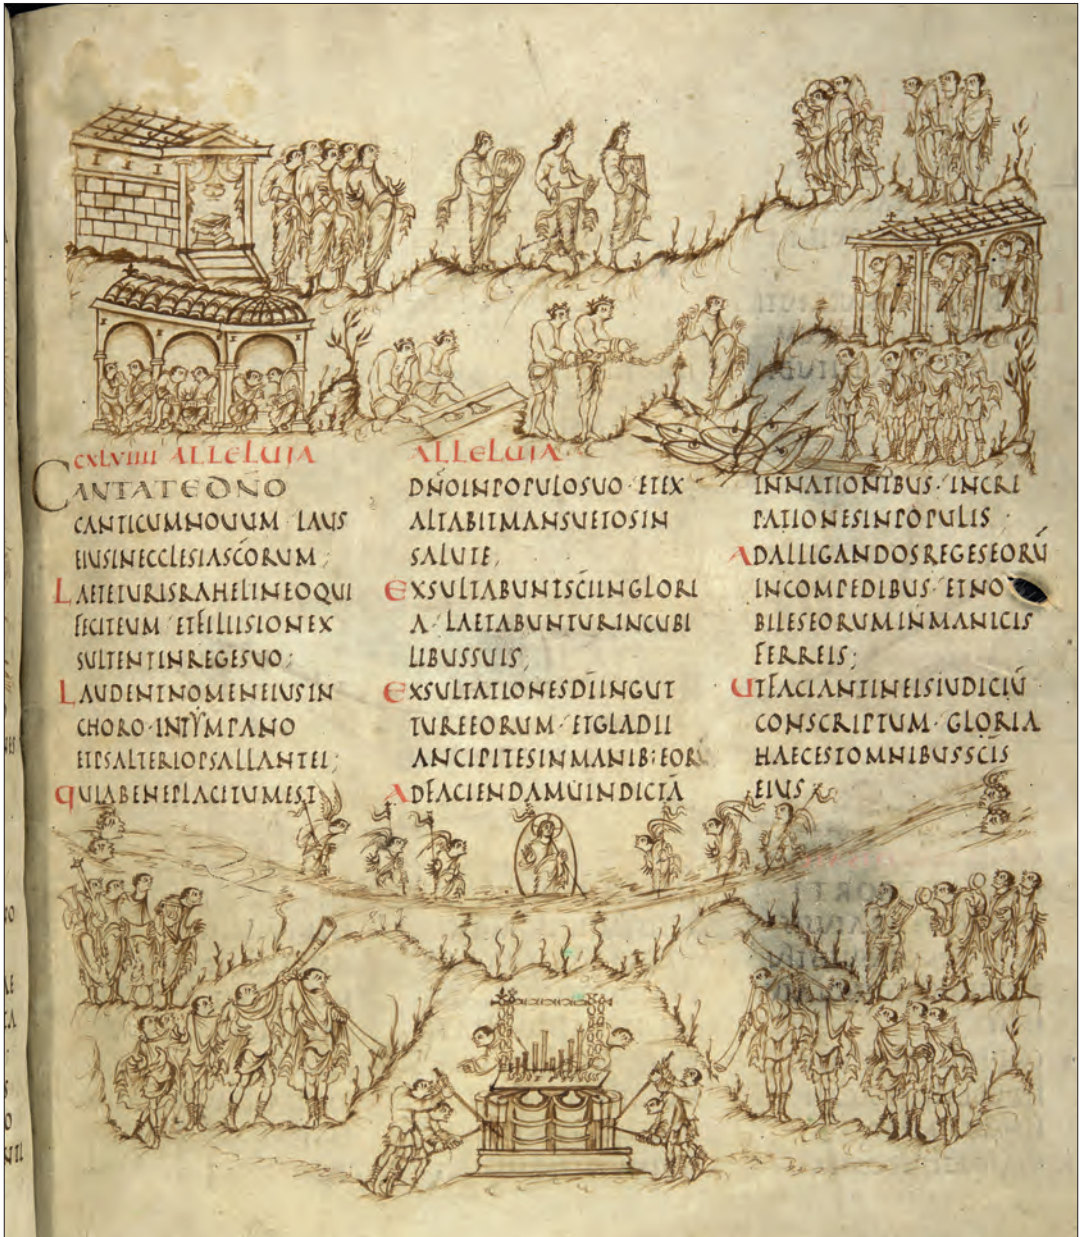 CXLVIIII ALLELUIA
CANTATE DÑO
CANTICUMNOUUM LAUS
EIUSINECCLESIASC̄ORUM;
LAETETURISRAHELINEOQUI
FECITEUM· ETFILIISIONEX
SULTENTINREGESUO;
LAUDENTNOMENEIUSIN
CHORO·INTẎMPANO
ETPSALTERIOPSALLANTEI;
QUIABENEPLACITUMEST
ALLELUIA·
DN̄OINPOPULOSUO·ETEX
ALTABITMANSUETOSIN
SALUTE;
EXSULTABUNTSC̄IINGLORI
A·LAETABUNTURINCUBI
LIBUSSUIS;
EXSULTATIONESDĪINGUT
TUREEORUM·ETGLADII
ANCIPITESINMANIB:EOR
ADFACIENDAMUINDICTĀ
INNATIONIBUS·INCRE
PATIONESINPOPULIS·
ADALLIGANDOSREGESEORŪ
INCOMPEDIBUS·ETNO
BILESEORUMINMANICIS
FERREIS;
UTFACIANTINEISIUDICIŪ
CONSCRIPTUM·GLORIA
HAECESTOMNIBUSSC̄IS
EIUS